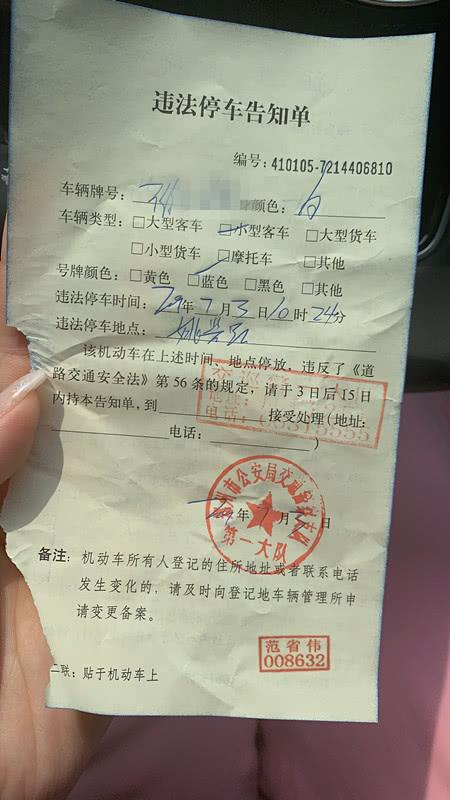 违法停车告知单
编号: 410105-7214406810
车辆牌号: 颜色: 白
车辆类型: □大型客车 □小型客车 □大型货车
□小型货车 □摩托车 □其他
号牌颜色: □黄色 □蓝色 □黑色 □其他
违法停车时间: 年7月3日10时24分
违法停车地点:
该机动车在上述时间、地点停放，违反了《道
路交通安全法》第56条的规定，请于3日后15日
内持本告知单，到 接受处理(地址:
电话: )
州市公安局交通警察支队
第一大队
年7月3日
备注: 机动车所有人登记的住所地址或者联系电话
发生变化的，请及时向登记地车辆管理所申
请变更备案。
范省伟
008632
二联: 贴于机动车上